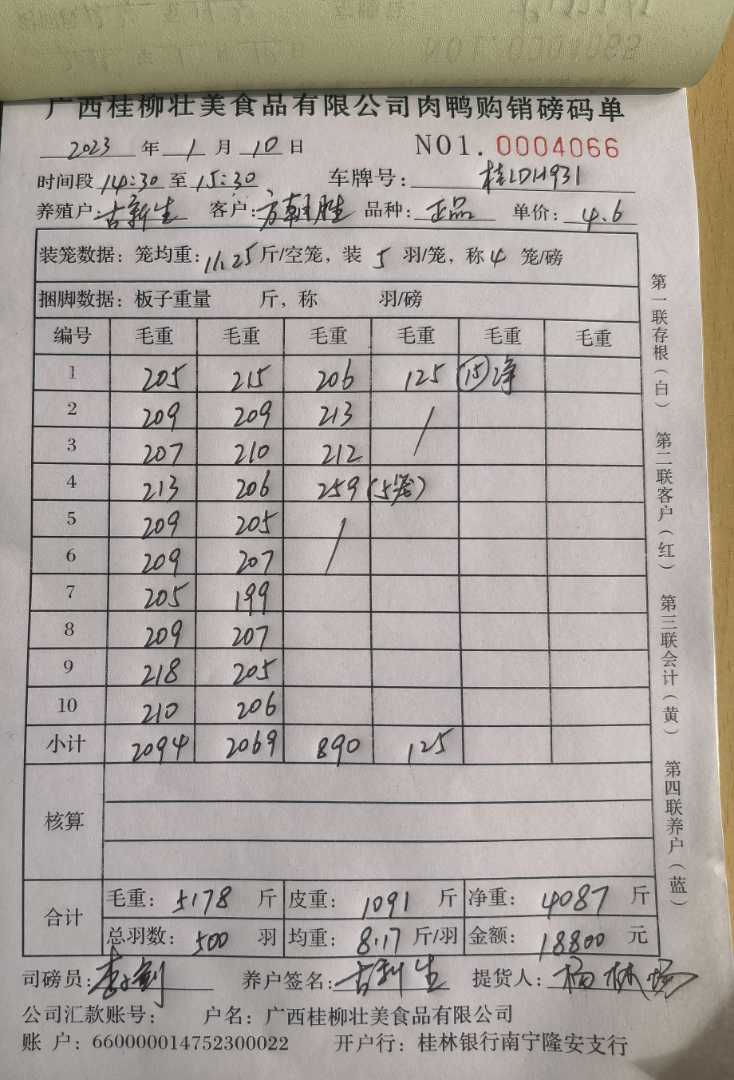 广西桂柳壮美食品有限公司肉鸭购销磅码单
2023 年 1 月 10 日 NO1. 0004066
时间段 14:30 至 15:30 车牌号: 桂LDH931
养殖户: 古新生 客户: 方朝胜 品种: 正品 单价: 4.6
装笼数据: 笼均重: 11.25 斤/空笼, 装 5 羽/笼, 称 4 笼/磅
捆脚数据: 板子重量 斤, 称 羽/磅
编号 毛重 毛重 毛重 毛重 毛重 毛重
1 205 215 206 125 (15)净
2 209 209 213 /
3 207 210 212
4 213 206 259 (5笼)
5 209 205 /
6 209 207
7 205 199
8 209 207
9 218 205
10 210 206
小计 2094 2069 890 125
核算
合计
毛重: 5178 斤 皮重: 1091 斤 净重: 4087 斤
总羽数: 500 羽 均重: 8.17 斤/羽 金额: 18800 元
司磅员: 养户签名: 古新生 提货人: 杨林场
公司汇款账号: 户名: 广西桂柳壮美食品有限公司
账 户: 660000014752300022 开户行: 桂林银行南宁隆安支行
第一联存根(白) 第二联客户(红) 第三联会计(黄) 第四联养户(蓝)